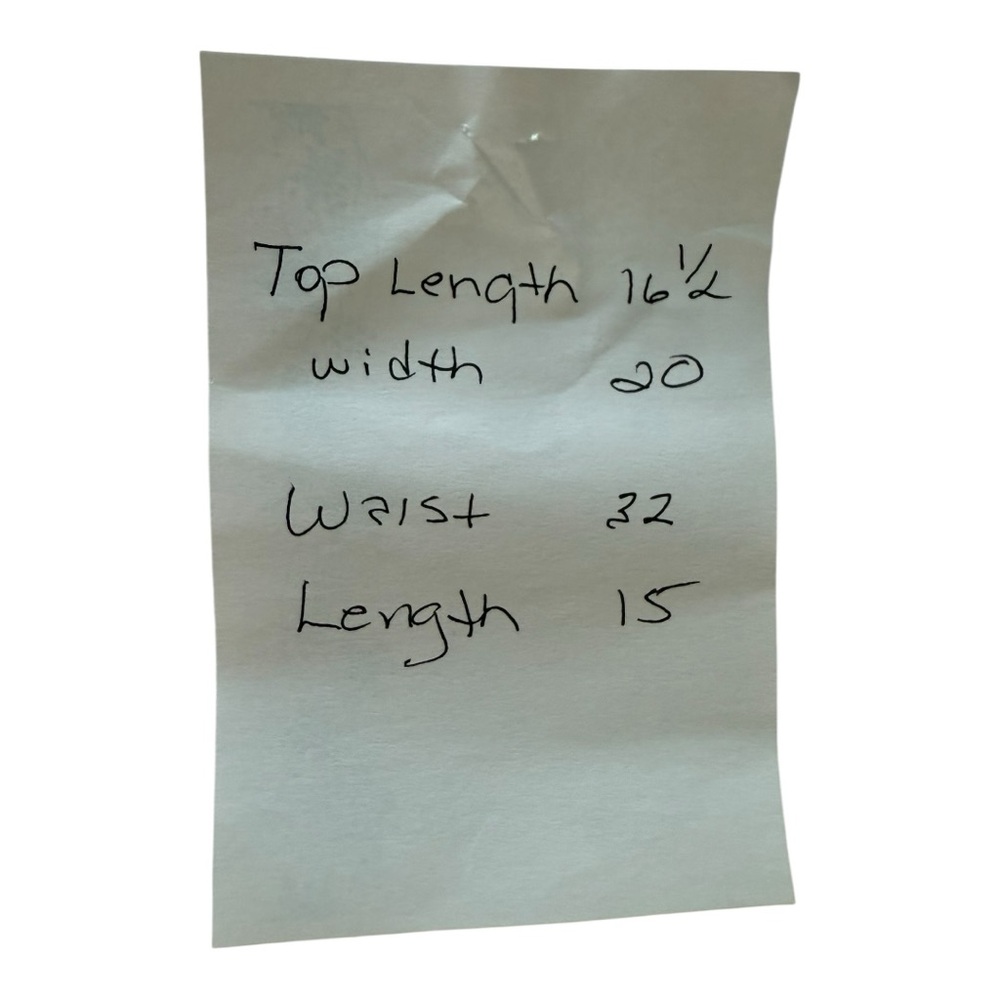 Top Length 16 1/2
width 20
Waist 32
Length 15